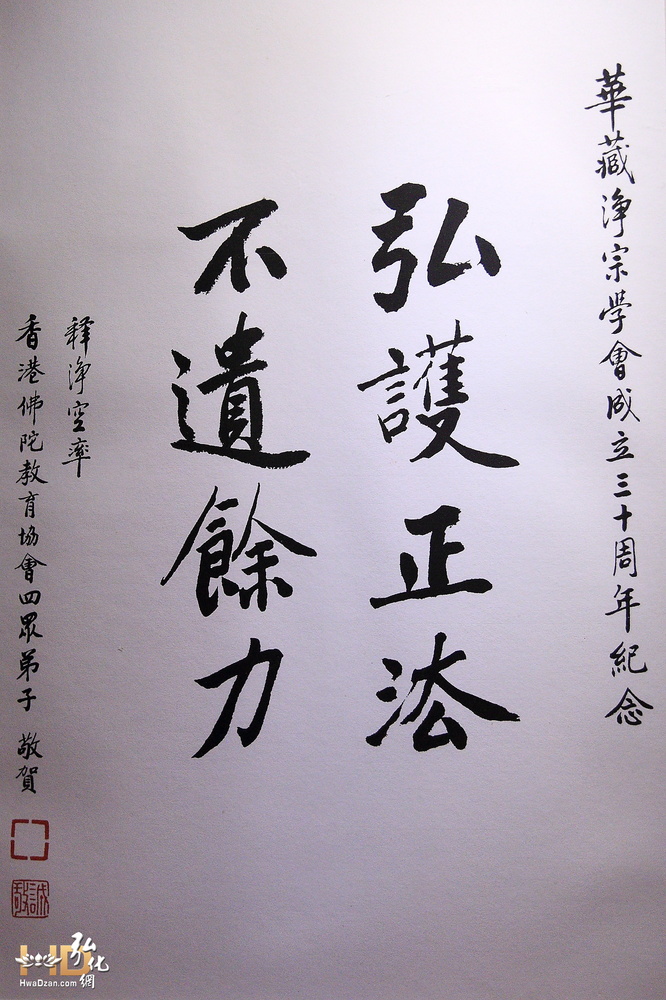 華藏淨宗學會成立三十周年紀念
弘護正法
不遺餘力
釋淨空率
香港佛陀教育協會四眾弟子 敬賀
誠敬
HD 弘化網
HwaDzan.com